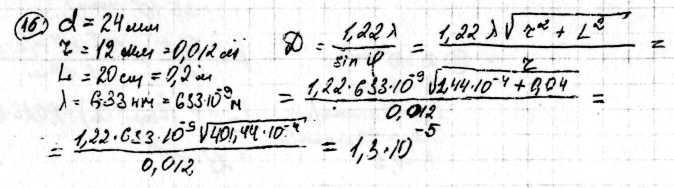 16) d = 24 мм
r = 12 мм = 0,012 м
L = 20 см = 0,2 м
λ = 633 нм = 633·10⁻⁹ м
D = 1,22λ / sin φ = 1,22 λ √(r² + L²) / r =
= 1,22·633·10⁻⁹ √(1,44·10⁻⁴ + 0,04) / 0,012 =
= 1,22·633·10⁻⁹ √(401,44·10⁻⁴) / 0,012 = 1,3·10⁻⁵